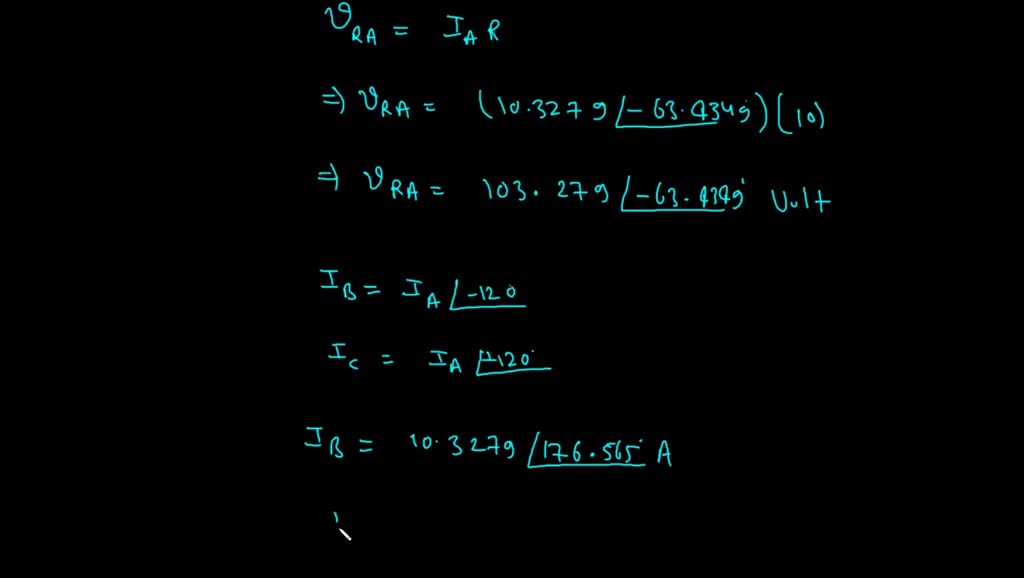 V_RA = I_A R
⇒ V_RA = (10.3279 ∠-63.4349)(10)
⇒ V_RA = 103.279 ∠-63.4349° Volt
I_B = I_A ∠-120
I_C = I_A ∠+120°
I_B = 10.3279 ∠176.565° A